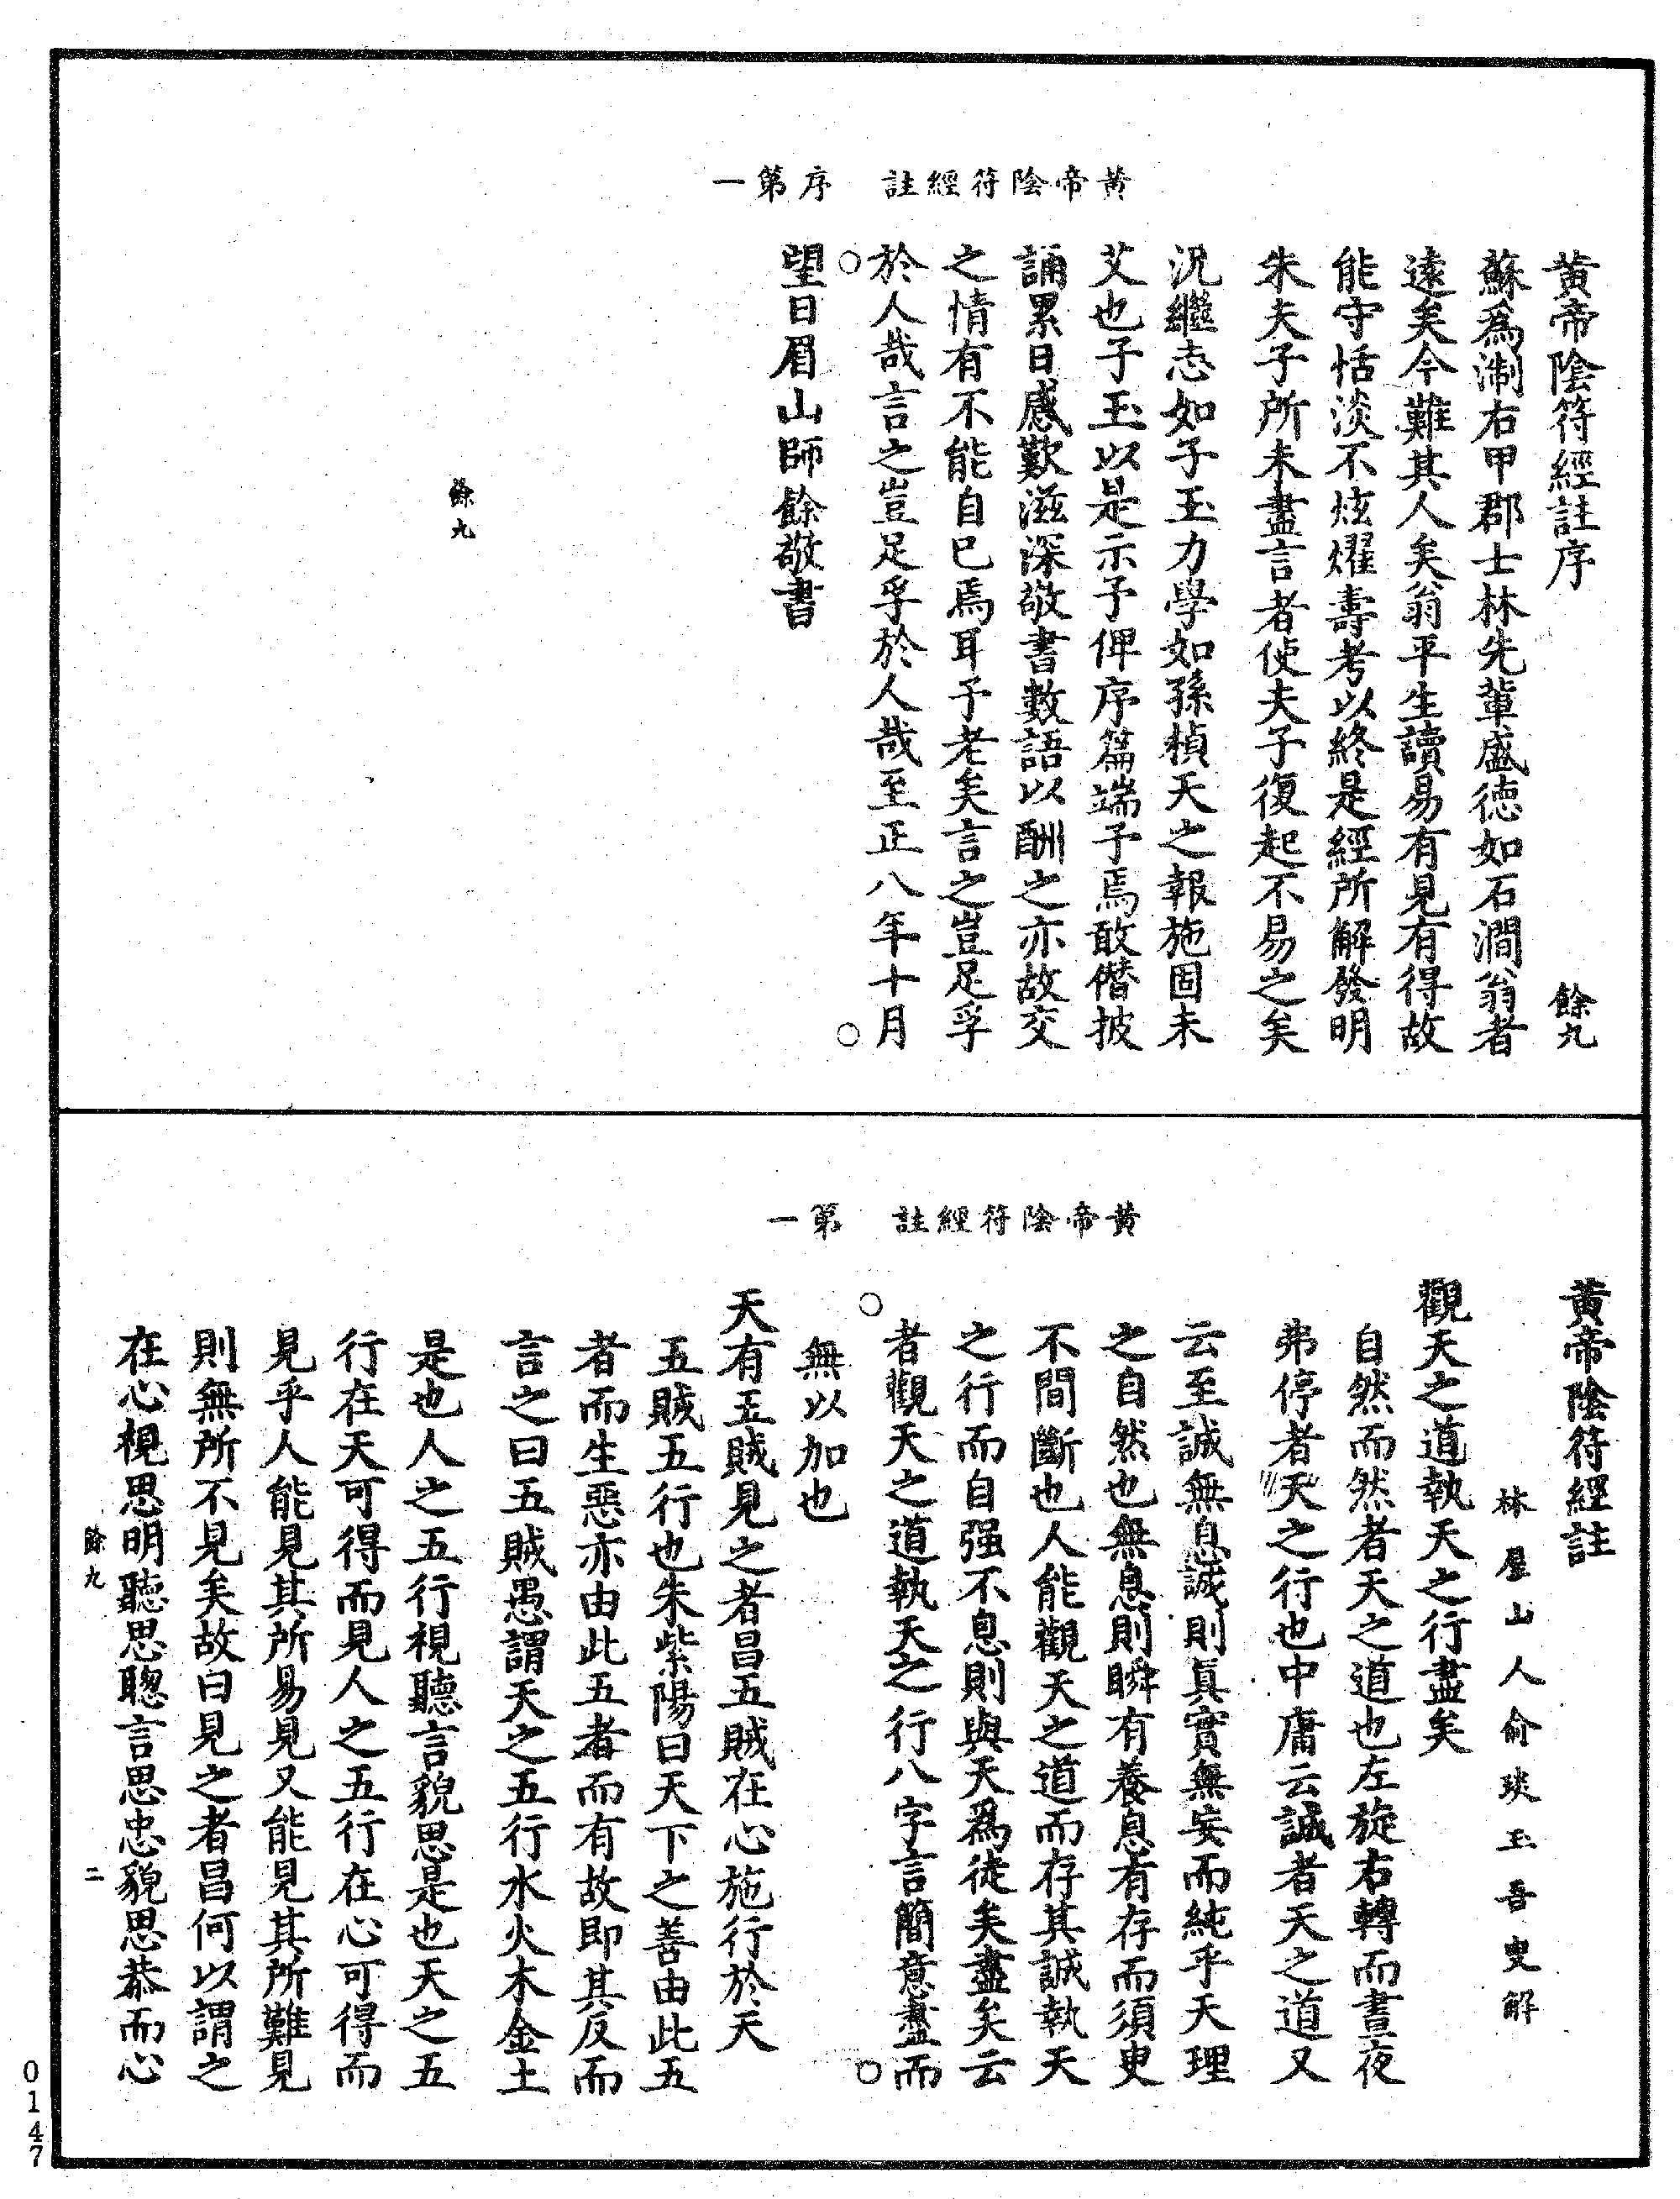 黃帝陰符經註　序第一
黃帝陰符經註序　餘九
蘇爲淛右甲郡士林先輩盛德如石澗翁者
遠矣今難其人矣翁平生讀易有見有得故
能守恬淡不炫燿壽考以終是經所解發明
朱夫子所未盡言者使夫子復起不易之矣
況繼志如子玉力學如孫楨天之報施固未
艾也子玉以是示予俾序篇端予焉敢僭披
誦累日感歎滋深敬書數語以酬之亦故交
之情有不能自已焉耳予老矣言之豈足孚
於人哉言之豈足孚於人哉至正八年十月
望日眉山師餘敬書
餘九
黃帝陰符經註　第一
黃帝陰符經註
林屋山人俞琰玉吾叟解
觀天之道執天之行盡矣
自然而然者天之道也左旋右轉而晝夜
弗停者天之行也中庸云誠者天之道又
云至誠無息誠則眞實無妄而純乎天理
之自然也無息則瞬有養息有存而須臾
不間斷也人能觀天之道而存其誠執天
之行而自强不息則與天爲徒矣盡矣云
者觀天之道執天之行八字言簡意盡而
無以加也
天有五賊見之者昌五賊在心施行於天
五賊五行也朱紫陽曰天下之善由此五
者而生惡亦由此五者而有故即其反而
言之曰五賊愚謂天之五行水火木金土
是也人之五行視聽言貌思是也天之五
行在天可得而見人之五行在心可得而
見乎人能見其所易見又能見其所難見
則無所不見矣故曰見之者昌何以謂之
在心視思明聽思聰言思忠貌思恭而心
餘九　二
0147